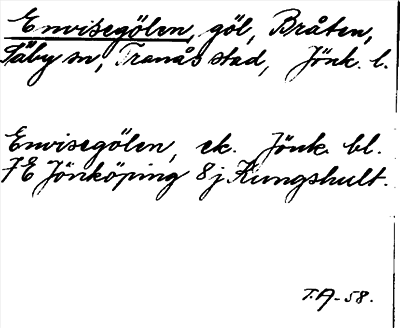 Envisegölen, göl, Bråten,
Säby sn, Tranås stad, Jönk. l.
Envisegölen, ek. Jönk. bl.
7E Jönköping 8j Kungshult.
T.A-58.